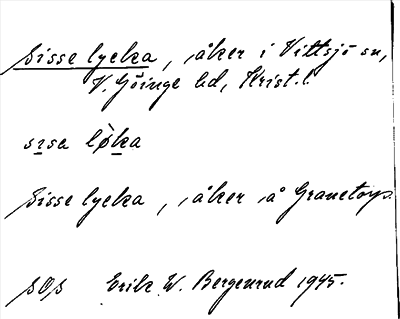 Sisse lycka, åker i Vittsjö sn,
V. Göinge hd, Krist. l.
sısa lø̀ka
Sisse lycka, åker å Granetorp.
sOs Erik W. Bergenrud 1945.